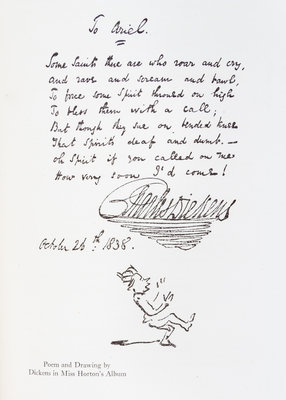 To Ariel.
Some Saints there are who roar and cry,
and rave and scream and bawl,
To force some Spirit throned on high
To bless them with a call;
But though they sue on bended knee
That Spirit's deaf and dumb. —
oh Spirit if you called on me
How very soon I'd come!
Charles Dickens
October 26th: 1838.
Poem and Drawing by
Dickens in Miss Horton's Album